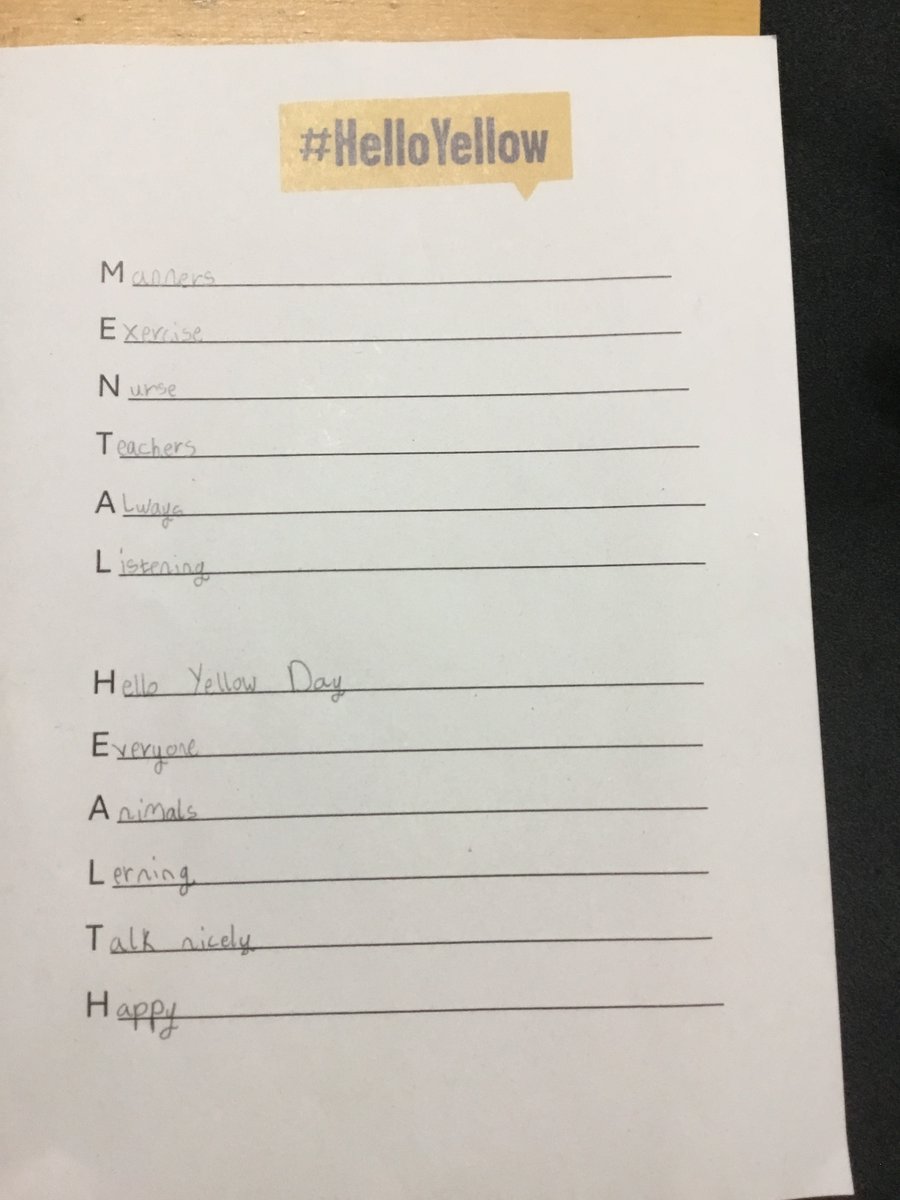 #HelloYellow
Manners
Exercise
Nurse
Teachers
ALways
Listening
Hello Yellow Day
Everyone
Animals
Lerning
Talk nicely
Happy